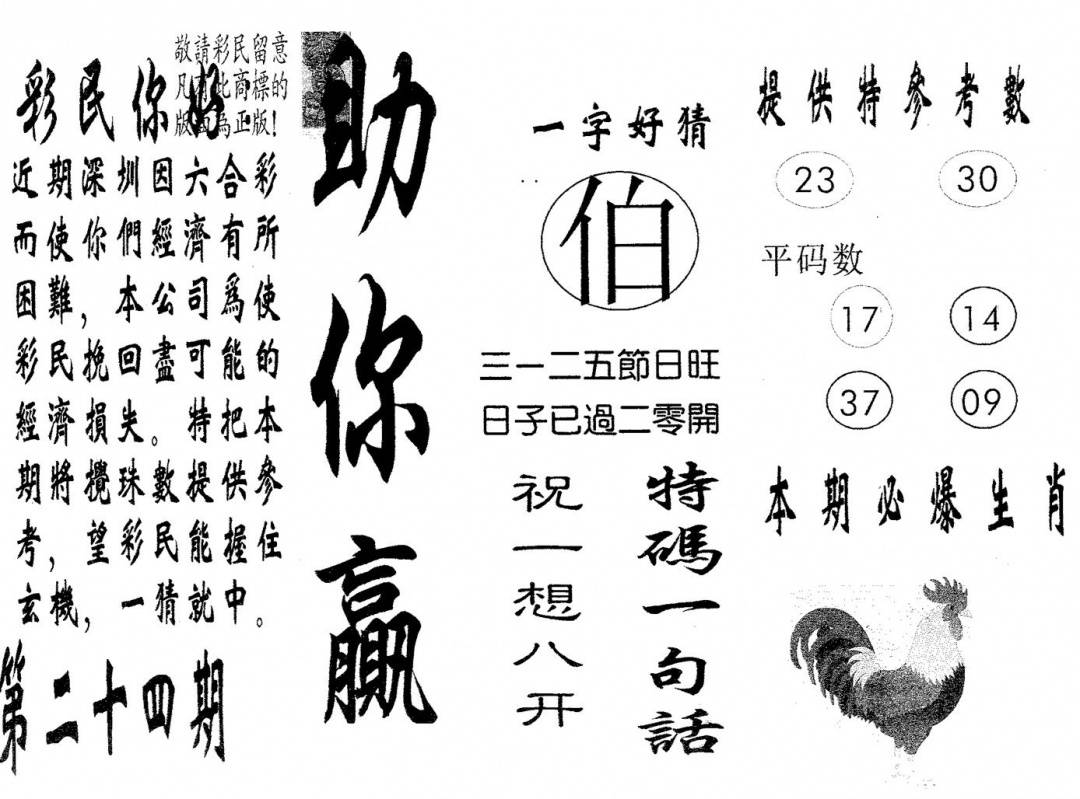 敬請彩民留意
凡有此商標的
版面為正版!
彩民你好:
近期深圳因六合彩
而使你們經濟有所
困難，本公司爲使
彩民挽回盡可能的
經濟損失。特把本
期將攪珠數提供參
考，望彩民能握住
玄機，一猜就中。
第二十四期
助你贏
一字好猜
伯
三一二五節日旺
日子已過二零開
特碼一句話
祝一想八开
提供特參考數
23 30
平码数
17 14
37 09
本期必爆生肖